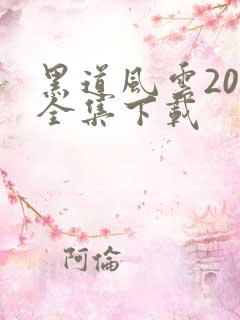 黑道風雲20
全集下載
阿倫